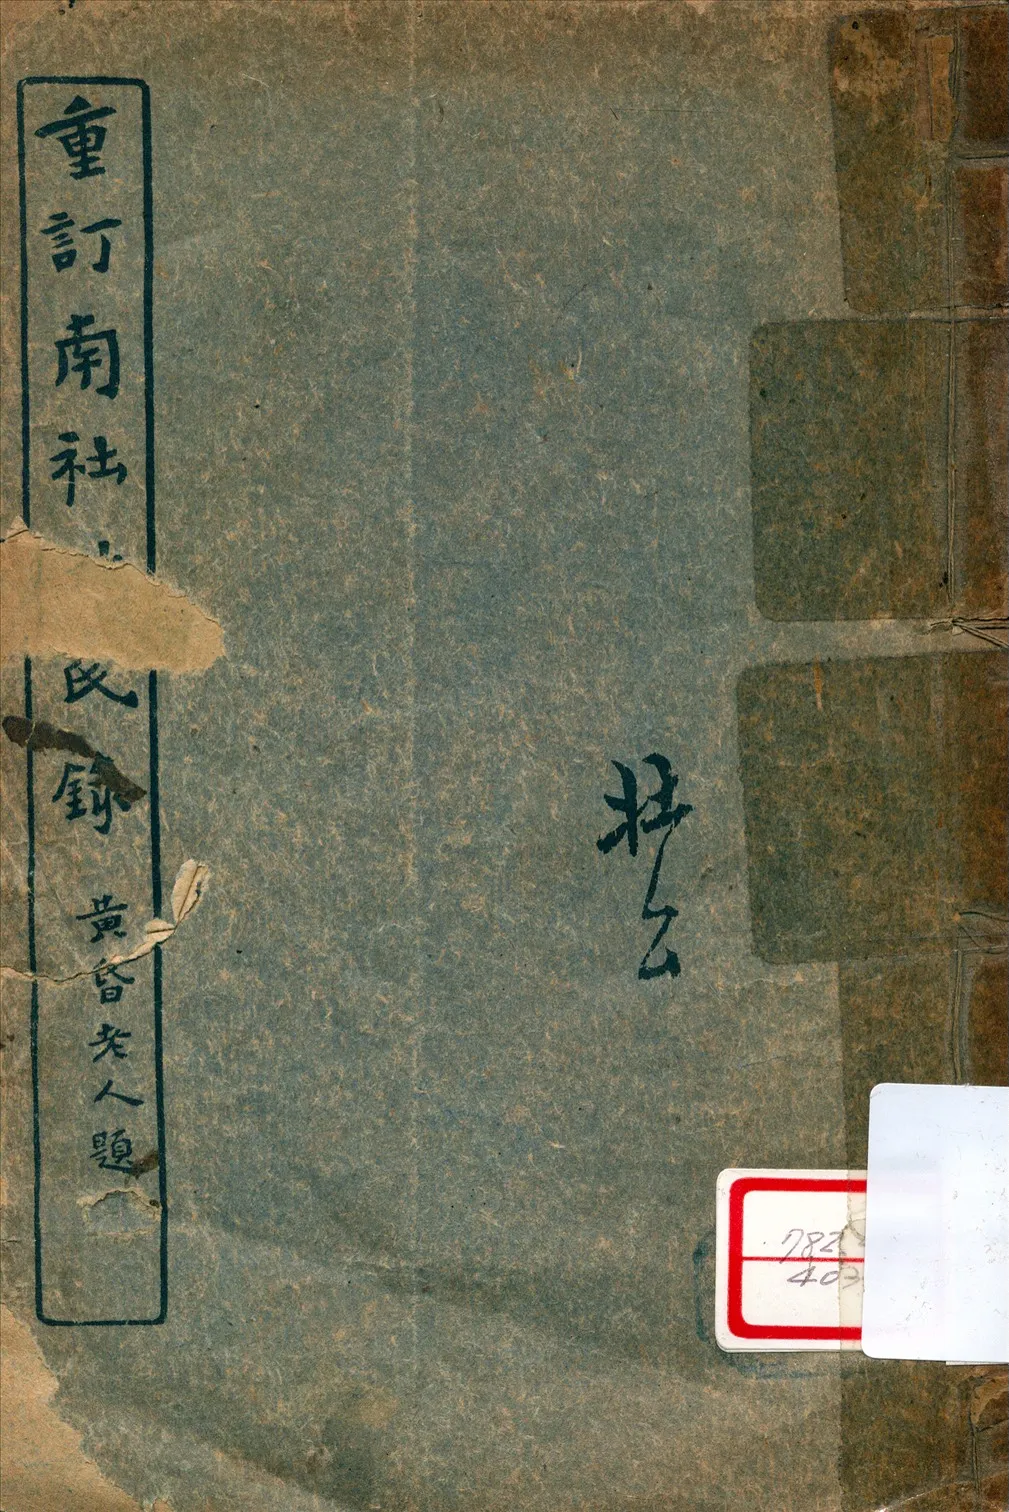 重訂南社
民錄
黃昏老人題
782
403